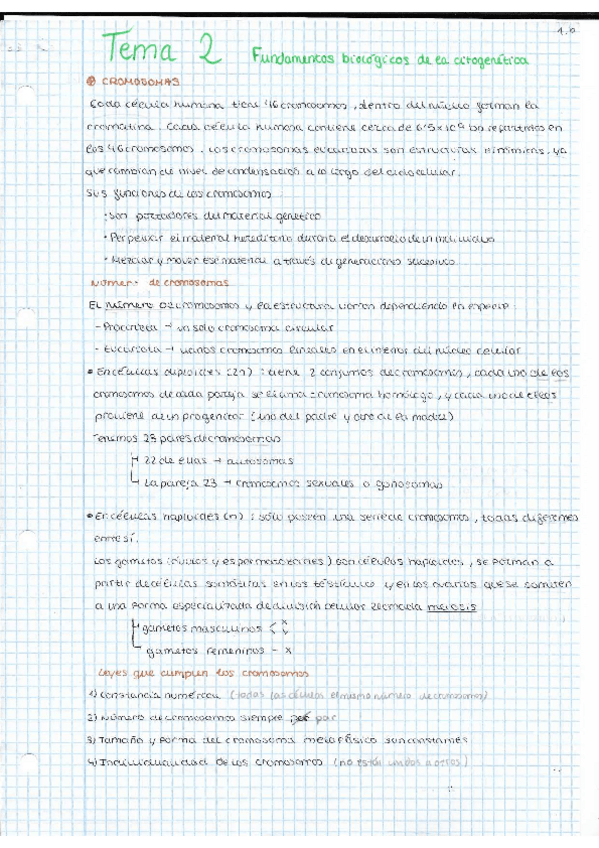 1.b
Tema 2 Fundamentos biológicos de la citogenética
CROMOSOMAS
Cada célula humana tiene 46 cromosomas, dentro del núcleo forman la
cromatina. Cada célula humana contiene cerca de 6'5x10^9 bp repartidos en
los 46 cromosomas. Los cromosomas eucariotas son estructuras dinámicas, ya
que cambian de nivel de condensación a lo largo del ciclo celular.
Sus funciones de los cromosomas
· Son portadores del material genético
· Perpetuar el material hereditario durante el desarrollo de un individuo
· Mezclar y mover ese material a través de generaciones sucesivas
Número de cromosomas
El número de cromosomas y la estructura varían dependiendo en especie:
- Procariota → un solo cromosoma circular
- Eucariota → varios cromosomas lineales en el interior del núcleo celular
• En células diploides (2n): tiene 2 conjuntos de cromosomas, cada uno de los
cromosomas de cada pareja se llama cromosoma homólogo, y cada uno de ellos
proviene de un progenitor (uno del padre y otro de la madre)
Tenemos 23 pares de cromosomas
22 de ellas → autosomas
La pareja 23 → cromosomas sexuales o gonosomas
• En células haploides (n): sólo poseen una serie de cromosomas, todas diferentes
entre sí.
Los gametos (óvulos y espermatozoides) son células haploides, se forman a
partir de células somáticas en los testículos y en los ovarios que se someten
a una forma especializada de división celular llamada meiosis
gametos masculinos < X Y
gametos femeninos - X
Leyes que cumplen los cromosomas
1) Constancia numérica (todas las células el mismo número de cromosomas)
2) Número de cromosomas siempre par
3) Tamaño y forma del cromosoma metafásico son constantes
4) Individualidad de los cromosomas (no están unidos a otros)